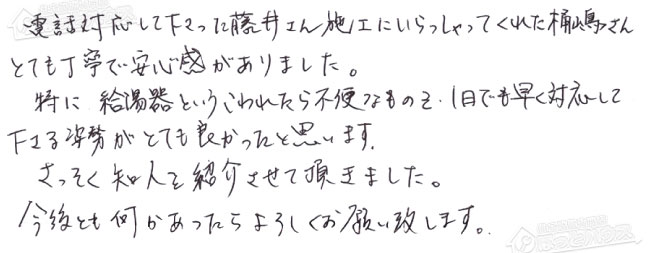 電話対応して下さった藤井さん施工にいらっしゃってくれた桶嶋さん
とても丁寧で安心感がありました。
特に 給湯器というこわれたら不便なものを、1日でも早く対応して
下さる姿勢がとても良かったと思います。
さっそく知人を紹介させて頂きました。
今後とも何かあったらよろしくお願い致します。